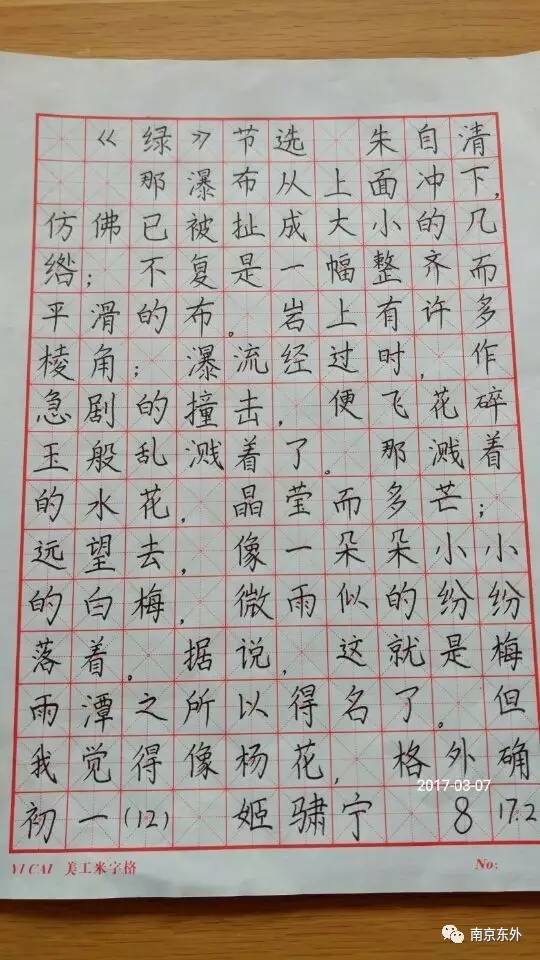 《绿》节选 朱自清
那瀑布从上面冲下，
仿佛已被扯成大小的几
绺；不复是一幅整齐而
平滑的布。岩上有许多
棱角；瀑流经过时，作
急剧的撞击，便飞花碎
玉般乱溅着了。那溅着
的水花，晶莹而多芒；
远望去，像一朵朵小小
的白梅，微雨似的纷纷
落着。据说，这就是梅
雨潭之所以得名了。但
我觉得像杨花，格外确
2017-03-07
初一(12) 姬骕宁 8 17.2
YI CAI 美工米字格 No:
南京东外